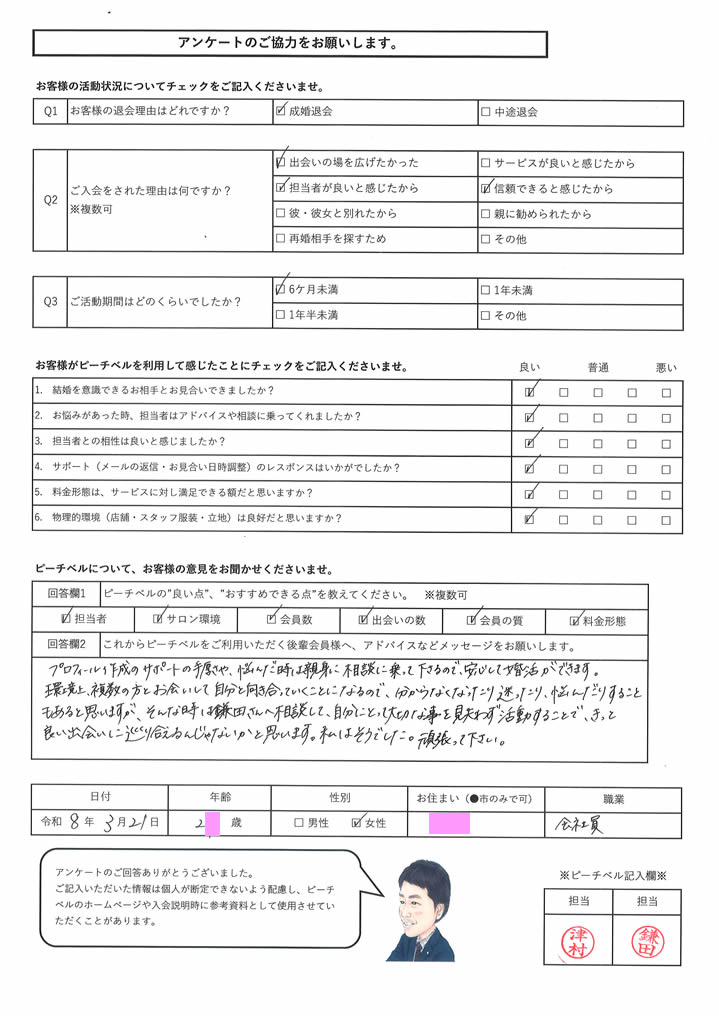 アンケートのご協力をお願いします。
お客様の活動状況についてチェックをご記入くださいませ。
Q1 お客様の退会理由はどれですか？ ☑成婚退会 □中途退会
Q2 ご入会をされた理由は何ですか？ ※複数可
☑出会いの場を広げたかった □サービスが良いと感じたから
☑担当者が良いと感じたから ☑信頼できると感じたから
□彼・彼女と別れたから □親に勧められたから
□再婚相手を探すため □その他
Q3 ご活動期間はどのくらいでしたか？
☑6ケ月未満 □1年未満
□1年半未満 □その他
お客様がピーチベルを利用して感じたことにチェックをご記入くださいませ。 良い 普通 悪い
1. 結婚を意識できるお相手とお見合いできましたか？ ☑ □ □ □ □
2. お悩みがあった時、担当者はアドバイスや相談に乗ってくれましたか？ ☑ □ □ □ □
3. 担当者との相性は良いと感じましたか？ ☑ □ □ □ □
4. サポート（メールの返信・お見合い日時調整）のレスポンスはいかがでしたか？ ☑ □ □ □ □
5. 料金形態は、サービスに対し満足できる額だと思いますか？ ☑ □ □ □ □
6. 物理的環境（店舗・スタッフ服装・立地）は良好だと思いますか？ ☑ □ □ □ □
ピーチベルについて、お客様の意見をお聞かせくださいませ。
回答欄1 ピーチベルの"良い点"、"おすすめできる点"を教えてください。 ※複数可
☑担当者 ☑サロン環境 ☑会員数 ☑出会いの数 ☑会員の質 ☑料金形態
回答欄2 これからピーチベルをご利用いただく後輩会員様へ、アドバイスなどメッセージをお願いします。
プロフィール作成のサポートの手厚さや、悩んだ時は親身に相談に乗って下さるので、安心して婚活ができます。
環境上、複数の方とお会いして自分と向き合っていくことになるので、分からなくなったり迷ったり、悩んだりすること
もあると思いますが、そんな時は鎌田さんへ相談して、自分にとって大切な事を見失わず活動することで、きっと
良い出会いに巡り合えるんじゃないかと思います。私はそうでした。頑張って下さい。
日付 年齢 性別 お住まい（●市のみで可） 職業
令和 8 年 3 月 21 日 2 歳 □男性 ☑女性 会社員
アンケートのご回答ありがとうございました。
ご記入いただいた情報は個人が断定できないよう配慮し、ピーチ
ベルのホームページや入会説明時に参考資料として使用させてい
ただくことがあります。
※ピーチベル記入欄※
担当 担当
津村 鎌田